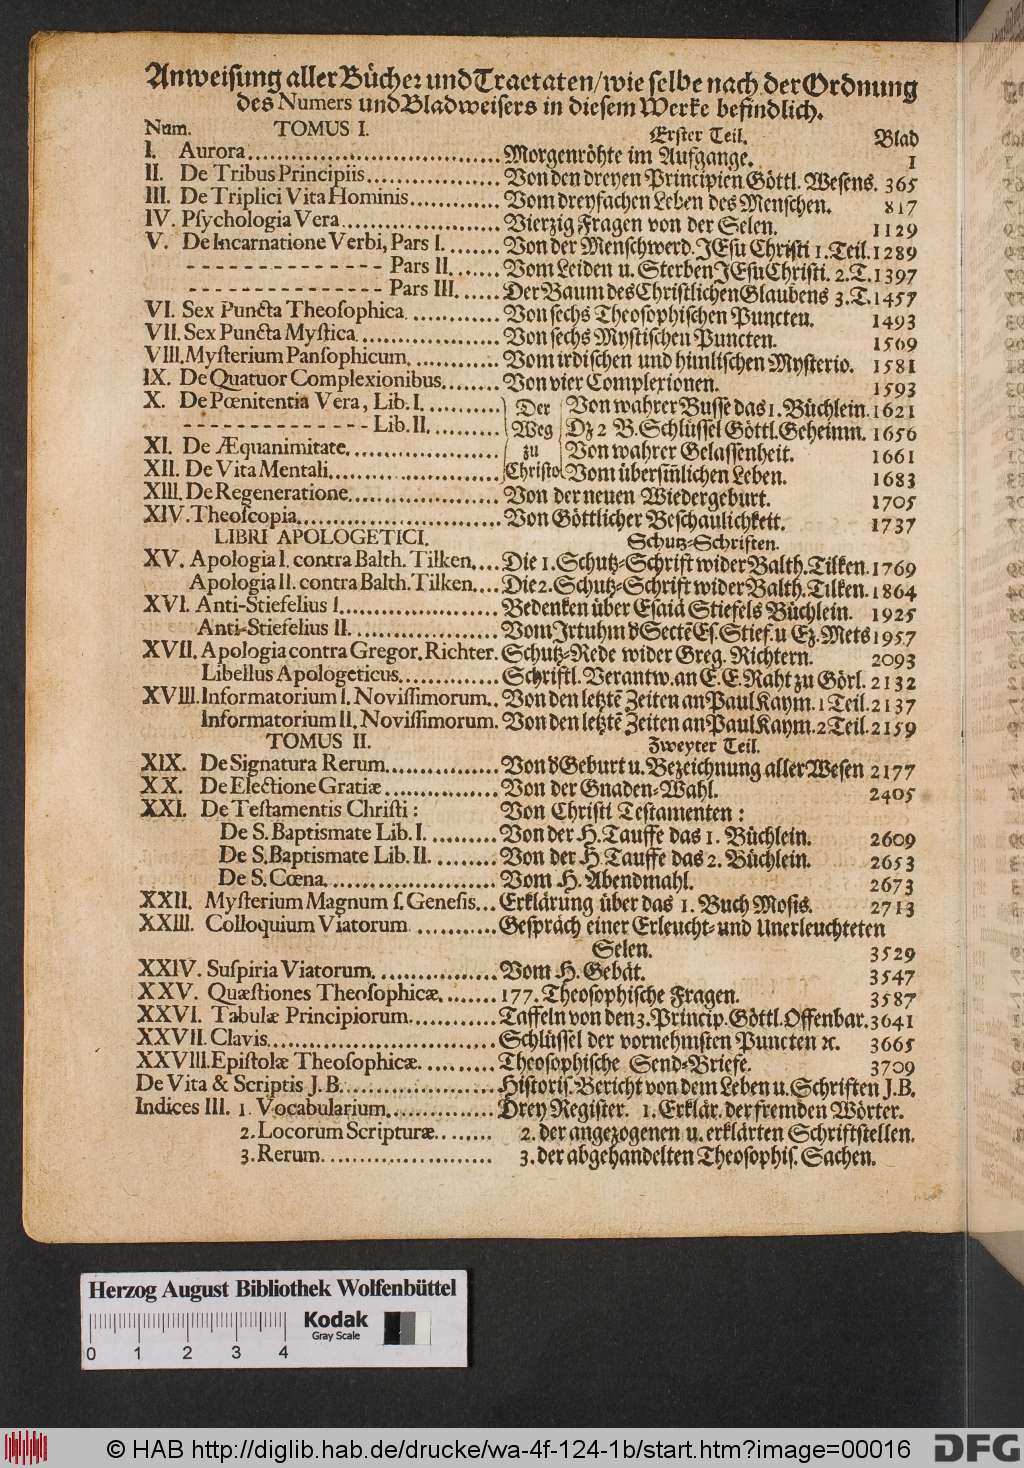 Anweisung aller Bücher und Tractaten/wie selbe nach der Ordnung
des Numers und Bladweisers in diesem Werke befindlich.
Num. TOMUS I. Erster Teil. Blad
I. Aurora.................................Morgenröhte im Aufgange. 1
II. De Tribus Principiis..................Von den dreyen Principien Göttl. Wesens. 365
III. De Triplici Vita Hominis............Vom dreyfachen Leben des Menschen. 817
IV. Pſychologia Vera.....................Vierzig Fragen von der Selen. 1129
V. De Incarnatione Verbi, Pars I.......Von der Menschwerd. JEsu Christi 1. Teil. 1289
- - - - - - - - - - - - - - - Pars II.......Vom Leiden u. Sterben JEsu Christi. 2. T. 1397
- - - - - - - - - - - - - - - Pars III......Der Baum des Christlichen Glaubens 3. T. 1457
VI. Sex Puncta Theoſophica.............Von sechs Theosophischen Puncten. 1493
VII. Sex Puncta Myſtica...................Von sechs Mystischen Puncten. 1569
VIII. Myſterium Panſophicum............Vom irdischen und himlischen Mysterio. 1581
IX. De Quatuor Complexionibus........Von vier Complexionen. 1593
X. De Pœnitentia Vera, Lib. I...........Der Von wahrer Busse das 1. Büchlein. 1621
- - - - - - - - - - - - - - - Lib. II..........Weg Dz 2 B. Schlüssel Göttl. Geheimn. 1656
XI. De Æquanimitate....................zu Von wahrer Gelassenheit. 1661
XII. De Vita Mentali.......................Christo Vom übersinnlichen Leben. 1683
XIII. De Regeneratione....................Von der neuen Wiedergeburt. 1705
XIV. Theoſcopia...........................Von Göttlicher Beschaulichkeit. 1737
LIBRI APOLOGETICI. Schutz=Schriften.
XV. Apologia I. contra Balth. Tilken....Die 1. Schutz=Schrift wider Balth. Tilken. 1769
Apologia II. contra Balth. Tilken....Die 2. Schutz=Schrift wider Balth. Tilken. 1864
XVI. Anti-Stiefelius I......................Bedenken über Esaiä Stiefels Büchlein. 1925
Anti-Stiefelius II....................Vom Irtuhm d Sectē Es. Stief. u Ez. Mets 1957
XVII. Apologia contra Gregor. Richter. Schutz=Rede wider Greg. Richtern. 2093
Libellus Apologeticus.............Schriftl. Verantw. an E. E. Raht zu Görl. 2132
XVIII. Informatorium I. Noviſſimorum..Von den letztē Zeiten an Paul Kaym. 1 Teil. 2137
Informatorium II. Noviſſimorum. Von den letztē Zeiten an Paul Kaym. 2 Teil. 2159
TOMUS II. Zweyter Teil.
XIX. De Signatura Rerum...............Von d Geburt u. Bezeichnung aller Wesen 2177
XX. De Electione Gratiæ...............Von der Gnaden=Wahl. 2405
XXI. De Teſtamentis Chriſti: Von Christi Testamenten:
De S. Baptismate Lib. I. ..........Von der H. Tauffe das 1. Büchlein. 2609
De S. Baptismate Lib. II. .........Von der H. Tauffe das 2. Büchlein. 2653
De S. Cœna........................Vom H. Abendmahl. 2673
XXII. Myſterium Magnum ſ. Geneſis...Erklärung über das 1. Buch Mosis. 2713
XXIII. Colloquium Viatorum............Gespräch einer Erleucht= und Unerleuchteten
Selen. 3529
XXIV. Suſpiria Viatorum.................Vom H. Gebät. 3547
XXV. Quæſtiones Theoſophicæ........177. Theosophische Fragen. 3587
XXVI. Tabulæ Principiorum............Taffeln von den 3. Princip. Göttl. Offenbar. 3641
XXVII. Clavis...............................Schlüssel der vornehmsten Puncten ꝛc. 3665
XXVIII. Epiſtolæ Theoſophicæ...........Theosophische Send=Briefe. 3709
De Vita & Scriptis J. B......................Historis. Bericht von dem Leben u. Schriften J. B.
Indices III. 1. Vocabularium...............Drey Register. 1. Erklär. der fremden Wörter.
2. Locorum Scripturæ.........2. der angezogenen u. erklärten Schriftstellen.
3. Rerum........................3. der abgehandelten Theosophis. Sachen.
Herzog August Bibliothek Wolfenbüttel
Kodak
Gray Scale
0 1 2 3 4
© HAB http://diglib.hab.de/drucke/wa-4f-124-1b/start.htm?image=00016
DFG